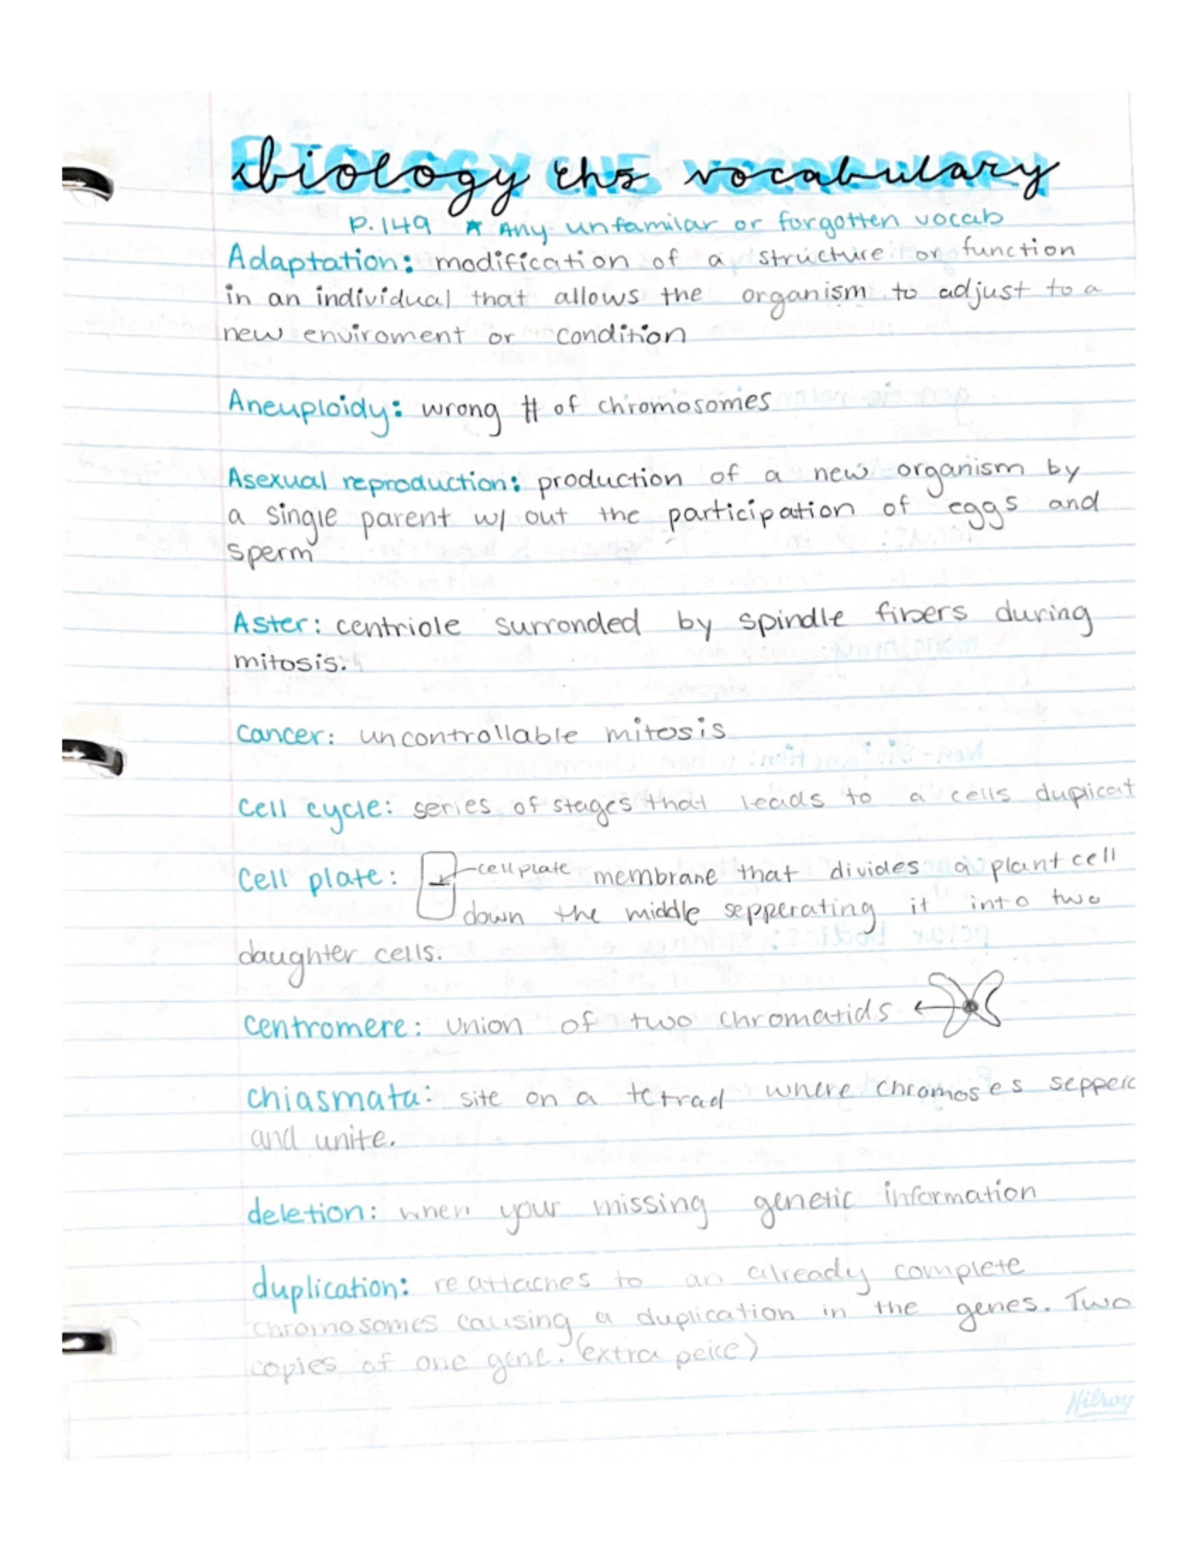 biology ch5 vocabulary
P.149 ★ Any unfamilar or forgotten vocab
Adaptation: modification of a structure or function
in an individual that allows the organism to adjust to a
new enviroment or condition
Aneuploidy: wrong # of chromosomes
Asexual reproduction: production of a new organism by
a single parent w/ out the participation of eggs and
sperm
Aster: centriole surronded by spindle fibers during
mitosis.
cancer: uncontrollable mitosis
cell cycle: series of stages that leads to a cells duplicat
cell plate: cell plate membrane that divides a plant cell
down the middle sepperating it into two
daughter cells.
centromere: union of two chromatids
chiasmata: site on a tetrad where chromoses
and unite.
deletion: when your missing genetic information
duplication: reattaches to an already complete
chromosomes causing a duplication in the genes. Two
copies of one gene. (extra peice)
Hilroy